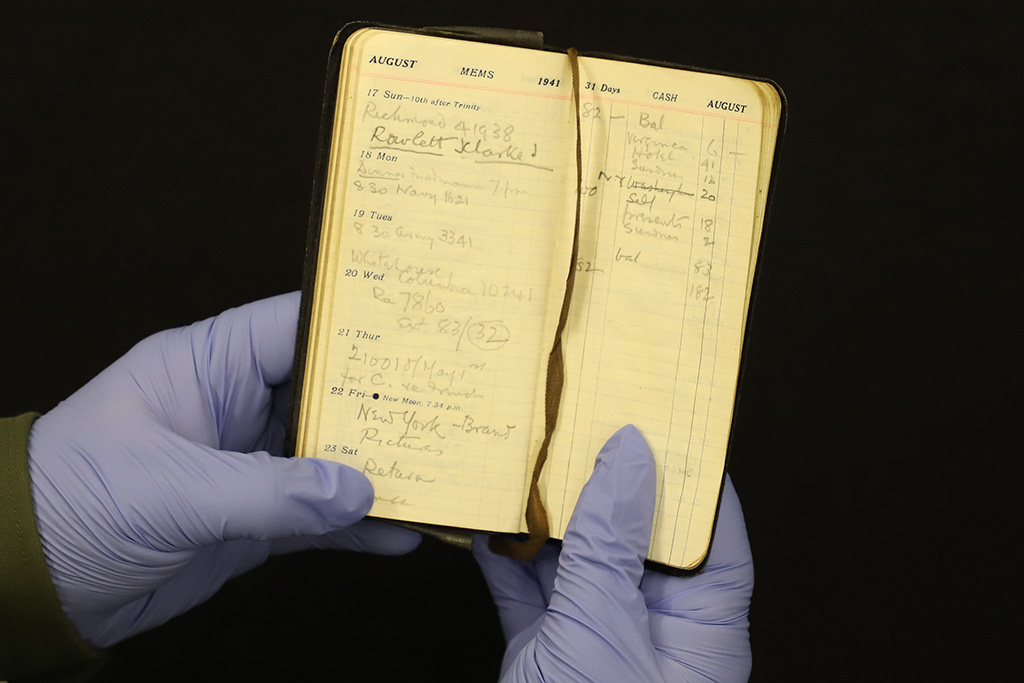 AUGUST MEMS 1941
17 Sun—10th after Trinity
Richmond 41938
Rowlett Klarke
18 Mon
Dinner 7 pm
8 30 Navy 1621
19 Tues
8 30 Army 3341
Whitehouse
20 Wed Columbia
Re 7860
Ext 83/32
21 Thur
210018/May 1st
for C.
22 Fri—● New Moon, 7.34 p.m.
New York - Brand
Pictures
23 Sat
Return
31 Days CASH AUGUST
82 — Bal
Virginia 6 —
Hotel 41
Sundries 12
NY Washington 20
Self
presents 18
Sundries 2
bal 83
182